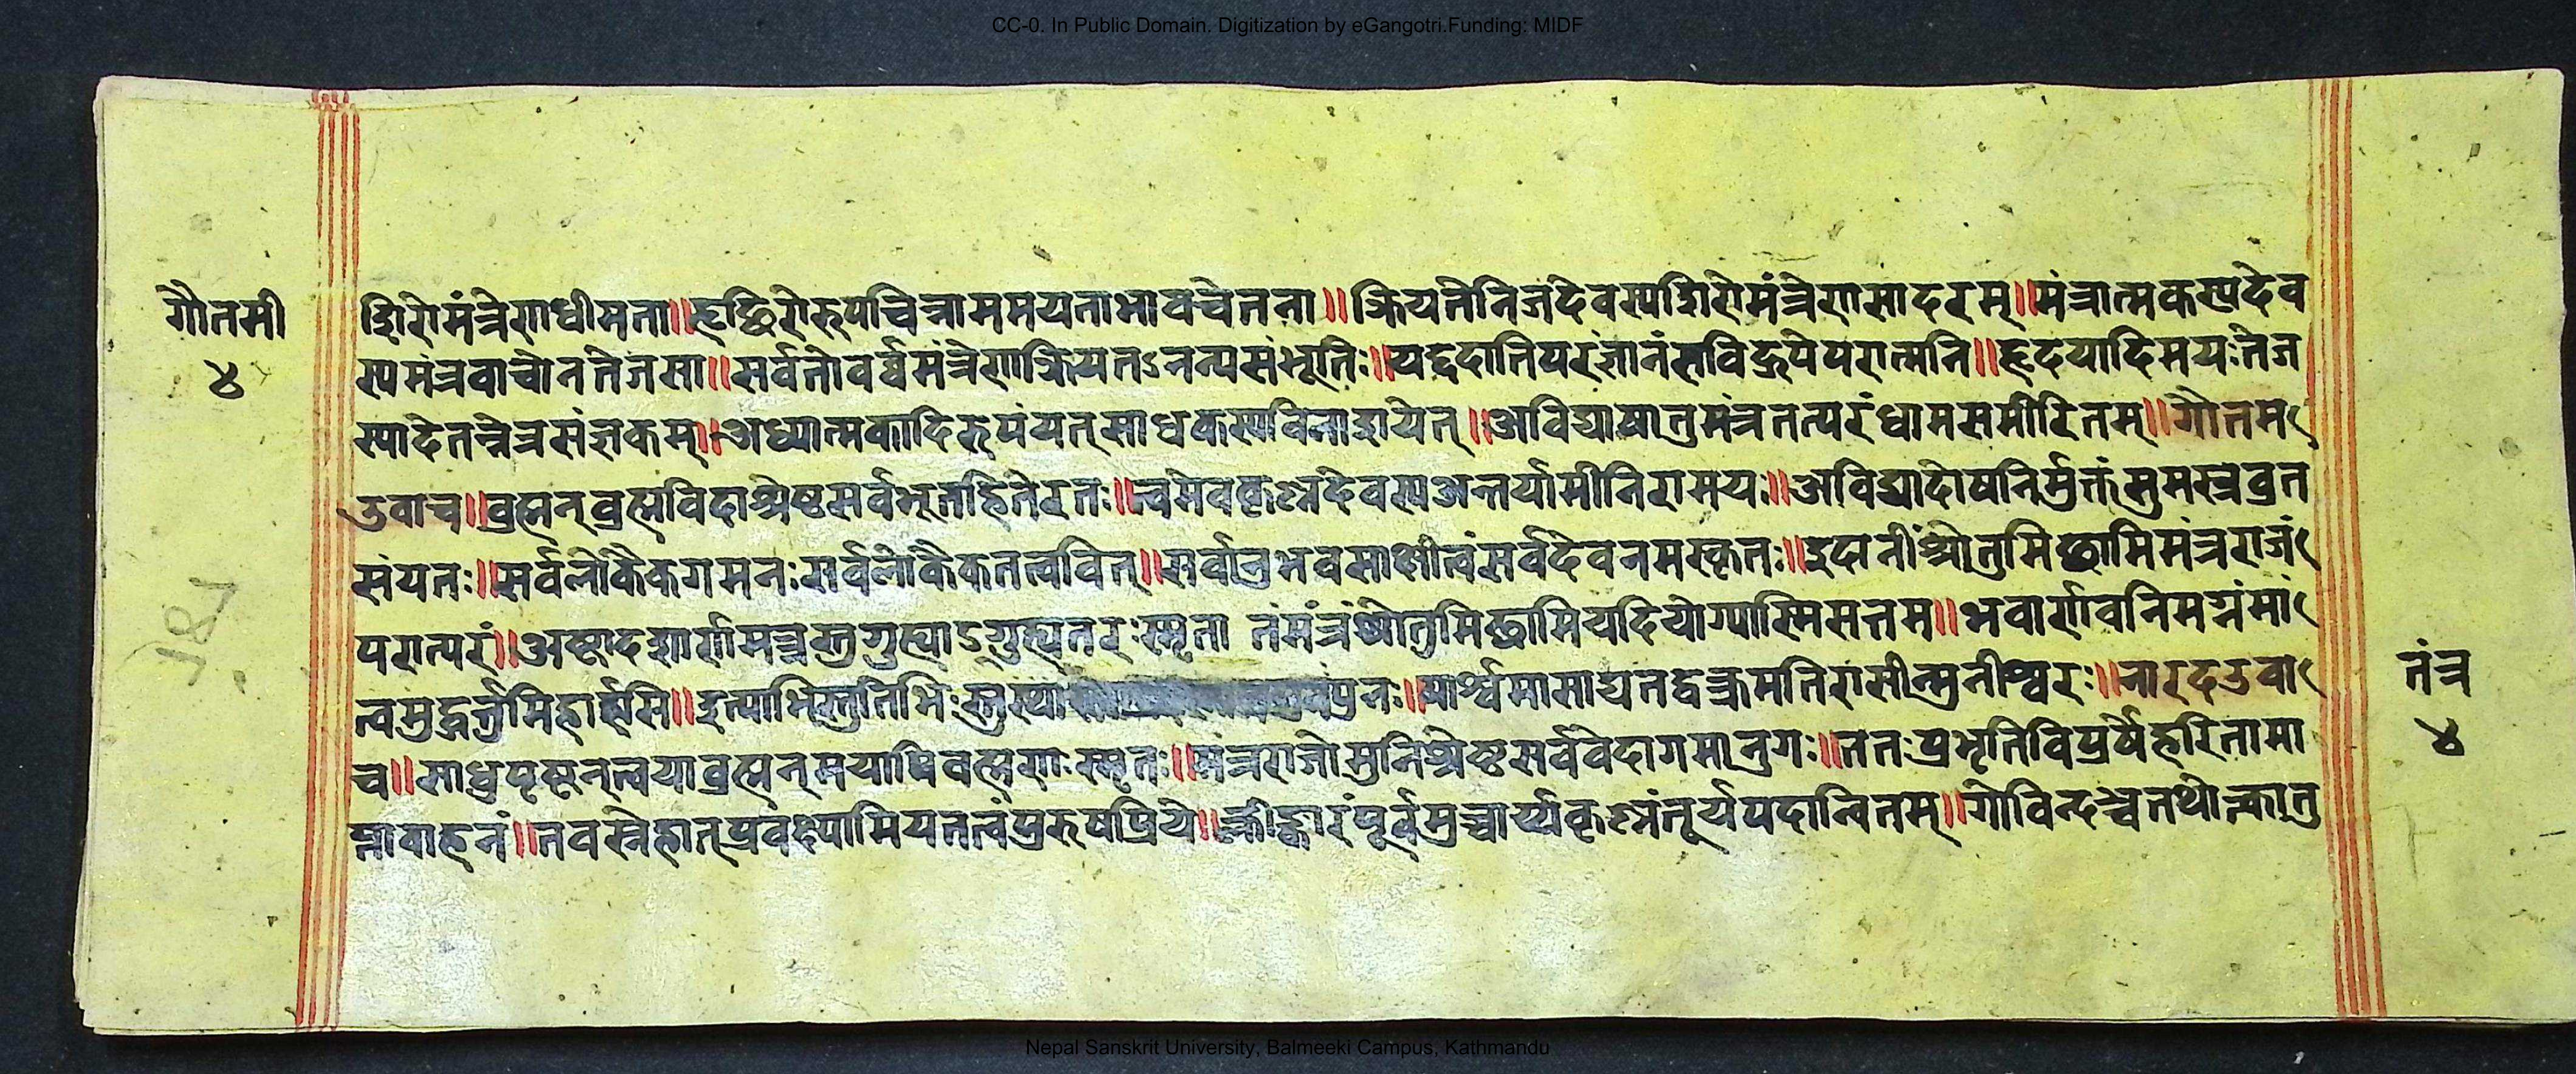 CC-0. In Public Domain. Digitization by eGangotri.Funding: MIDF
गौतमी
४
शिरोमंत्रेणधीमता॥हृच्छिरोरूपचिन्नाममयताभावचेतना॥क्रियतेनिजदेवस्यशिरोमंत्रेणसादरम्॥मंत्रात्मकस्यदेव
स्यमंत्रवाचोनतेजसा॥सर्वतोवर्ष्ममंत्रेणक्रियतऽनन्यसंभूतिः॥यद्ददातिपरंज्ञानंसविद्रूपेपरात्मनि॥हृदयादिमयःतेज
स्यादेतन्नेत्रसंज्ञकम्॥अध्यात्मकादिरूपंयत्साधकस्यविनाशयेत्॥अविद्याषातुमंत्रतत्परंधामसमीरितम्॥गौतम
उवाच॥व्रह्मन्व्रह्मविदाश्रेष्ठसर्वभूतहितेरतः॥त्वमेवकृश्नदेवस्यअन्तर्यामीनिरामयः॥अविद्यादोषनिर्मुक्तंसुमस्त्रव्रत
संयतः॥सर्वलोकैकगमनःसर्वलोकैकतत्ववित्॥सर्वानुभवसाक्षीत्वंसर्वदेवनमस्कृतः॥इदानींश्रोतुमिछामिमंत्रराजं
परात्परं॥अष्टादशार्णमन्त्रस्तुगुह्याऽगुह्यतरःस्मृता तंमंत्रंश्रोतुमिछामियदियोग्यास्मिसत्तम॥भवार्णवनिमग्नंमां
त्वमुद्धर्त्तुमिहार्हसि॥इत्याभिस्तुतिभिःस्तुत्या प्रनः॥पार्श्वमासाद्यतद्वक्रमतिरासीन्मुनीश्वरः॥नारदउवा
च॥साधुपृष्टन्त्वयाव्रह्मन्मयापिवह्मणःस्मृतः॥मंत्रराजोमुनिश्रेष्ठसर्ववेदागमानुगः॥ततःप्रभृतिविप्रर्षेहरिनामा
न्नावाहनं॥तवस्नेहात्प्रवक्ष्यामियतत्वंपुरुषप्रिये॥क्लीङ्कारंपूर्वमुच्चार्य्यकृश्नंतूर्यपदान्वितम्॥गोविन्दञ्चतथोत्काातु
तंत्र
४
Nepal Sanskrit University, Balmeeki Campus, Kathmandu